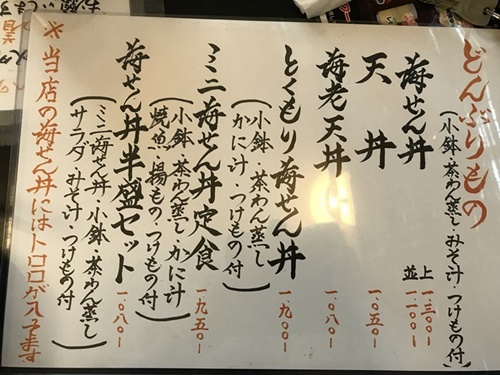 どんぶりもの
(小鉢・茶わん蒸し・みそ汁・つけもの付)
海せん丼 上 一、三〇〇-
並 一、一〇〇-
天丼 一、〇五〇-
海老天丼 一、〇八〇-
とくもり海せん丼 一、九〇〇-
(小鉢・茶わん蒸し
かに汁・つけもの付)
ミニ海せん丼定食 一、九五〇-
(小鉢・茶わん蒸し・かに汁
焼魚・揚もの・つけもの付)
海せん丼半盛セット 一、〇八〇-
(ミニ海せん丼・小鉢・茶わん蒸し
サラダ・みそ汁・つけもの付)
※当店の海せん丼にはトロロが入ってます
お願いします